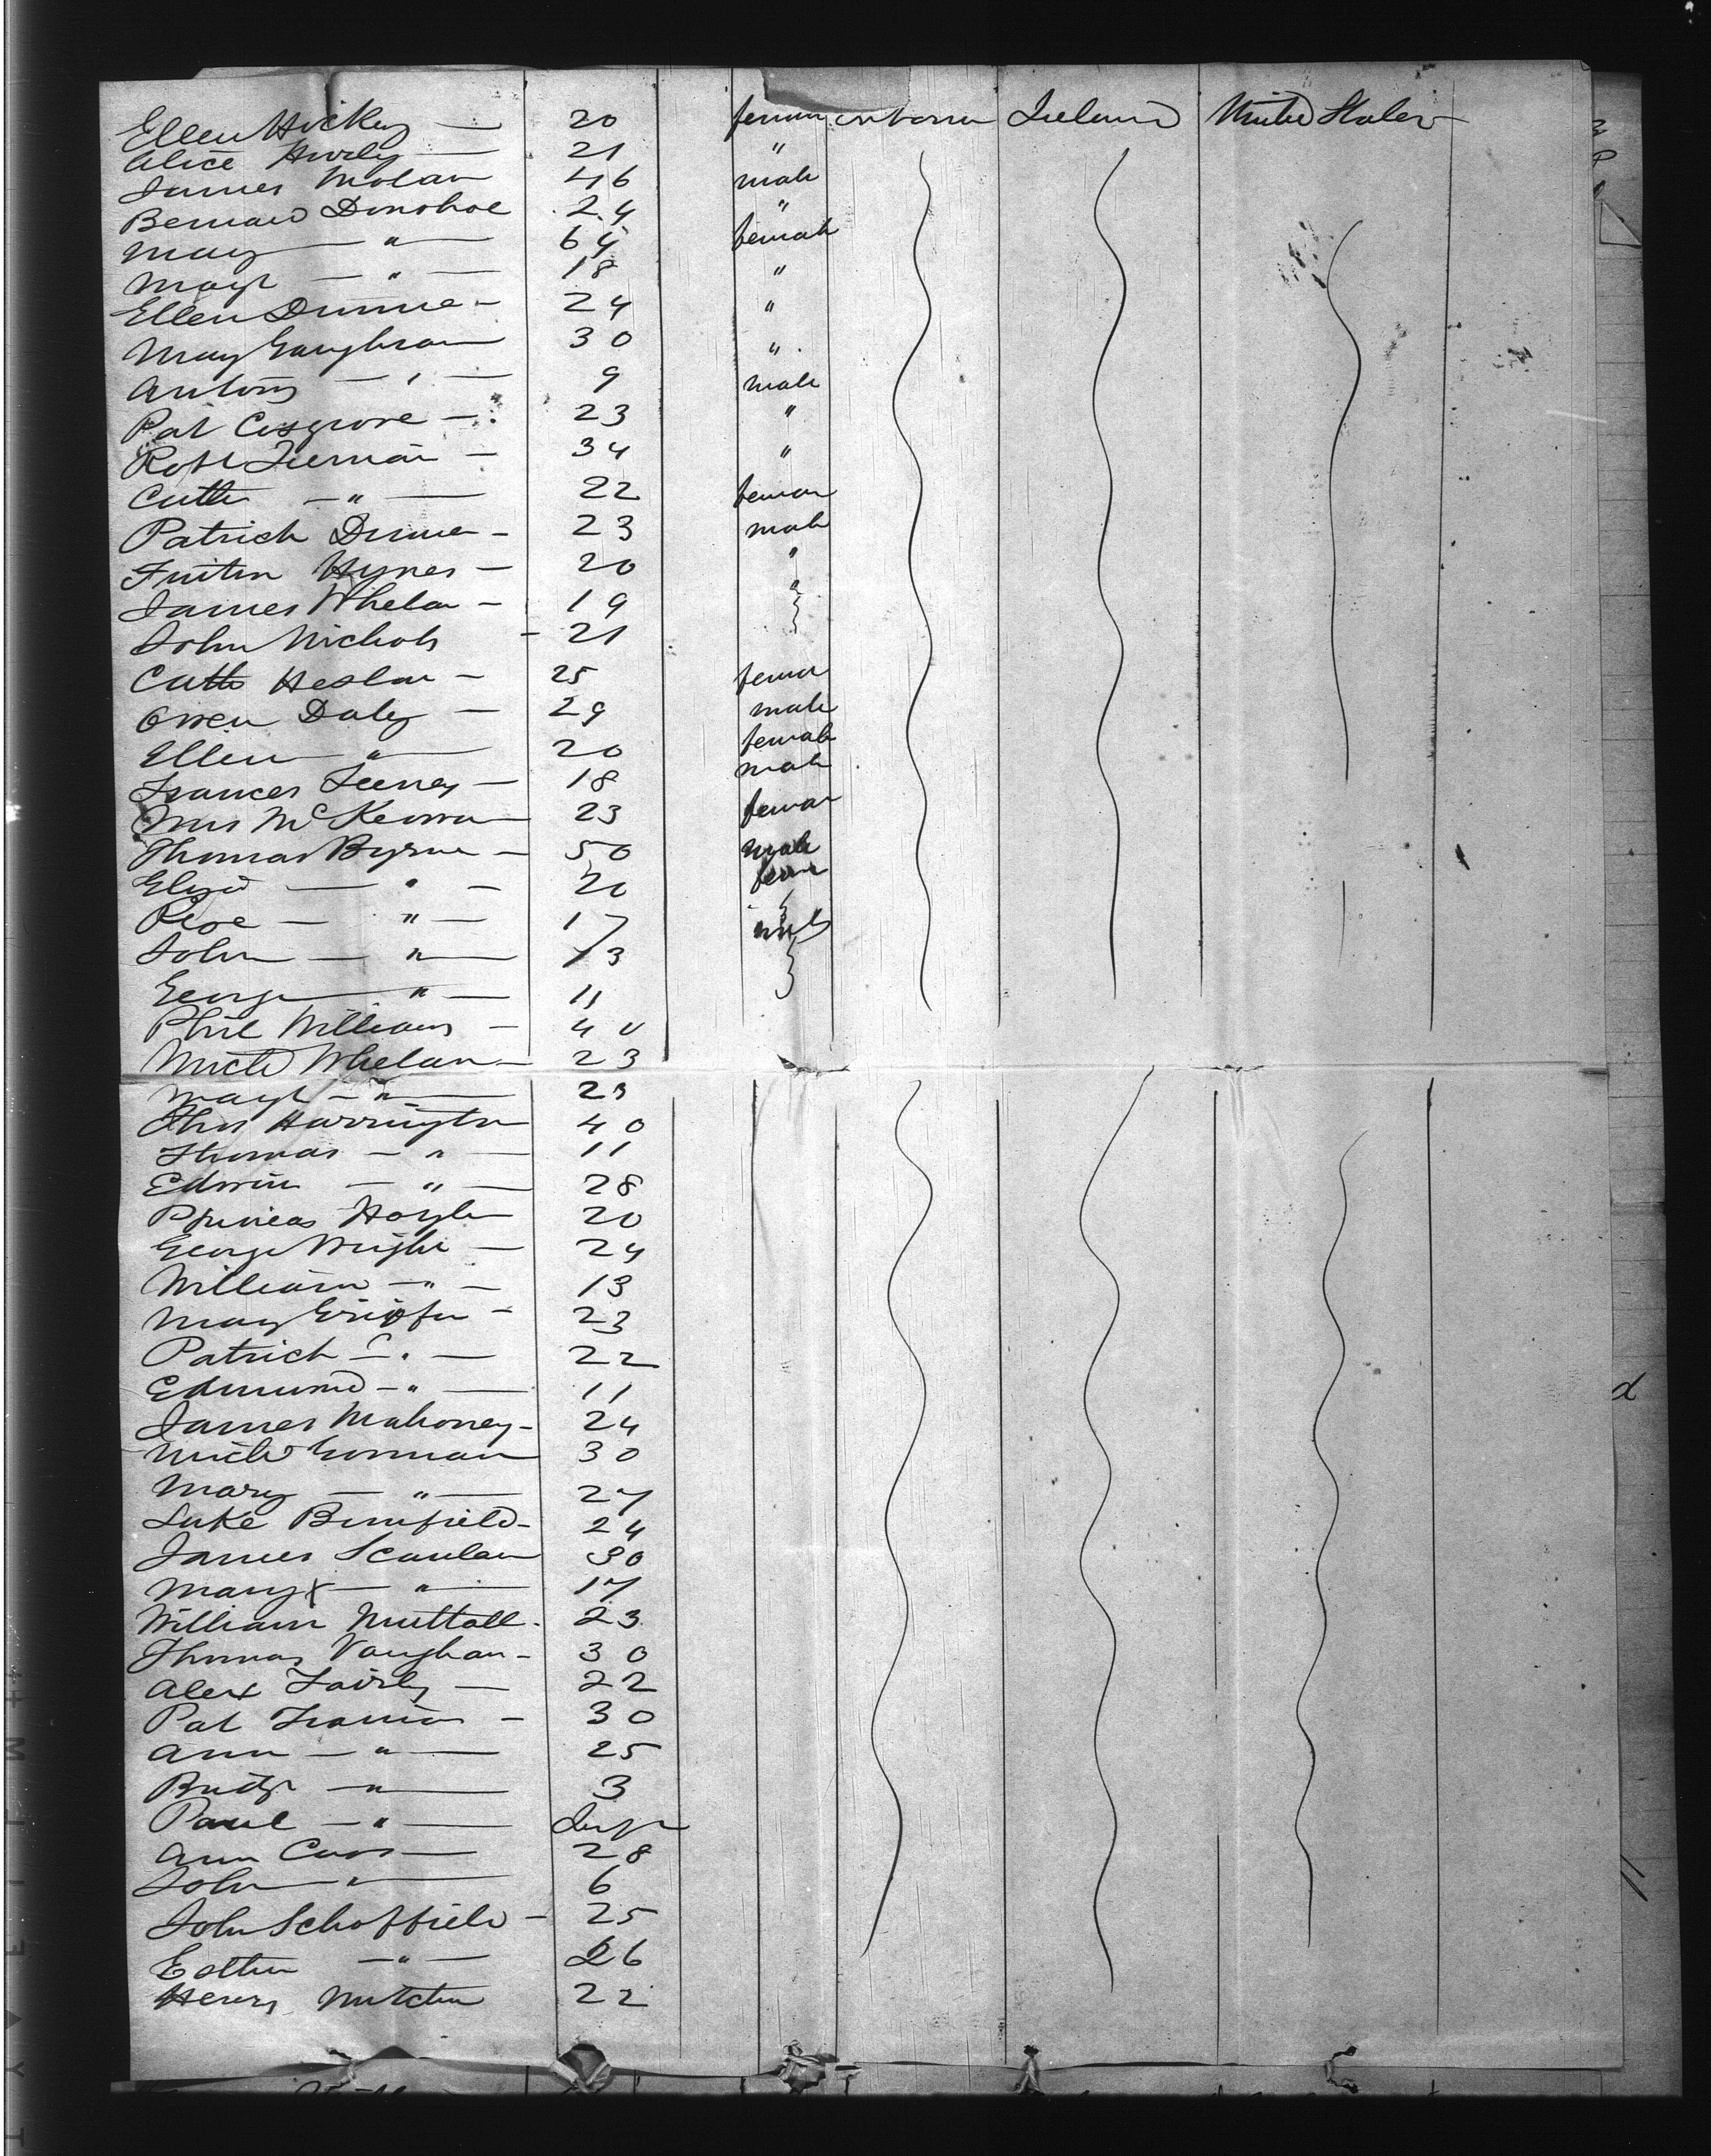 Ellen Hickey — 20 female Ireland United States
Alice Hurly — 21 "
James Molan 46 male
Bernard Donohoe 24 "
Mary — " — 64 female
Margt — " — 18 "
Ellen Dunne - 24 "
Mary Gaughran 30 "
Antony — " — 9 male
Pat Cosgrove — 23 "
Robt — 34 "
Cathe — " — 22 female
Patrick Dunne - 23 male
Fintin Hynes — 20 "
James Whelan — 19 "
John Nichols - 21
Cathe Heslan — 25 female
Owen Daly — 29 male
Ellen — " — 20 female
Frances Feeney — 18 male
Mrs McKeown — 23 female
Thomas Byrne — 50 male
Eliza — " — 20 female
Rose — " — 17
John — " — 13 male
George — " — 11
Phil Williams — 40
Michl Whelan — 23
Margt — " — 23
Thos Harrington 40
Thomas — " — 11
Edwin — " — 28
Phineas Hoyle 20
George Wright — 24
William — " — 13
Mary Griffin — 23
Patrick — " — 22
Edmund — " — 11
James Mahoney - 24
Michl Gorman 30
Mary — " — 27
Luke Bumfield - 24
James Scanlan 30
Mary x — " — 17
William Nuttall - 23
Thomas Vaughan - 30
Alex Fairly — 22
Pat — 30
Ann — " — 25
Bridgt — " — 3
Paul — " — Inft
Ann — 28
John — " — 6
John Schoffield — 25
Esther — " — 26
Henry 22